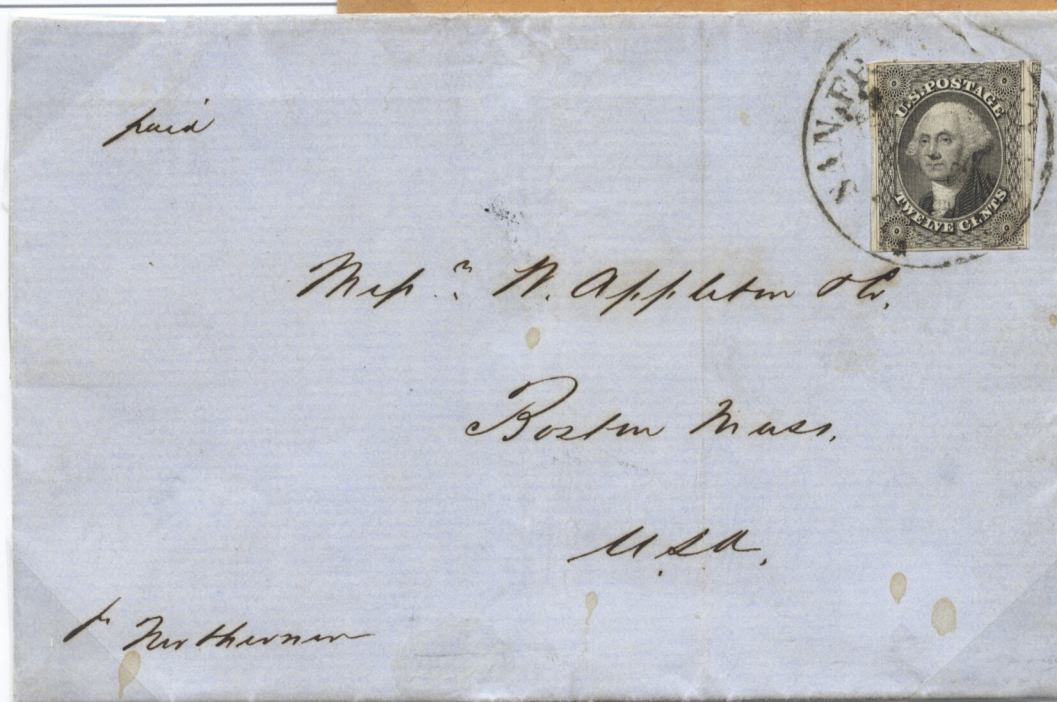 paid
SAN FR
U.S. POSTAGE
TWELVE CENTS
Mess.rs W. Appleton & Co.
Boston Mass.
U.S.A.
pr Northerner